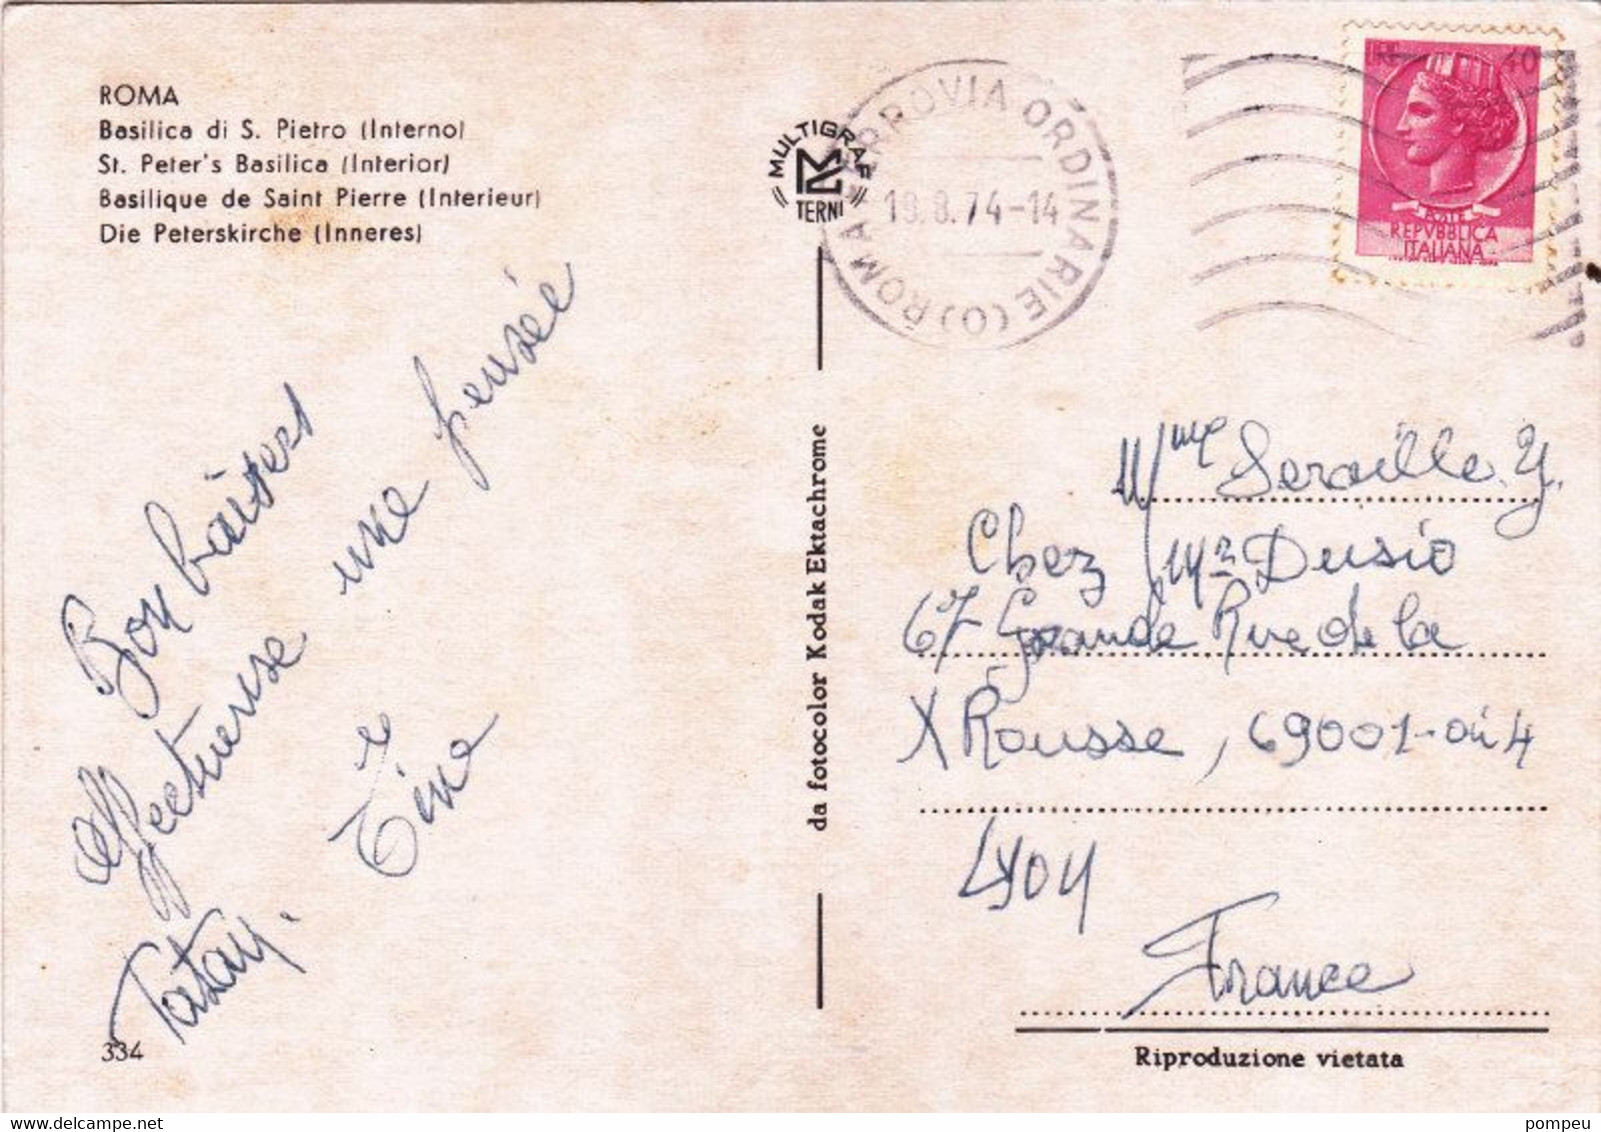 ROMA
Basilica di S. Pietro (Interno)
St. Peter's Basilica (Interior)
Basilique de Saint Pierre (Interieur)
Die Peterskirche (Inneres)
Bon baisers
affectueuse une pensée
Tatan. & Tine
334
MULTIGRAF
TERNI
da fotocolor Kodak Ektachrome
ROMA FERROVIA ORDINARIE (O)
19.8.74-14
40
POSTE
REPVBBLICA
ITALIANA
Mme Seraille. Y.
Chez Mr Dusio
67 Grande Rue de la
X Rousse, 69001-ou 4
Lyon
France
Riproduzione vietata
delcampe.net
pompeu